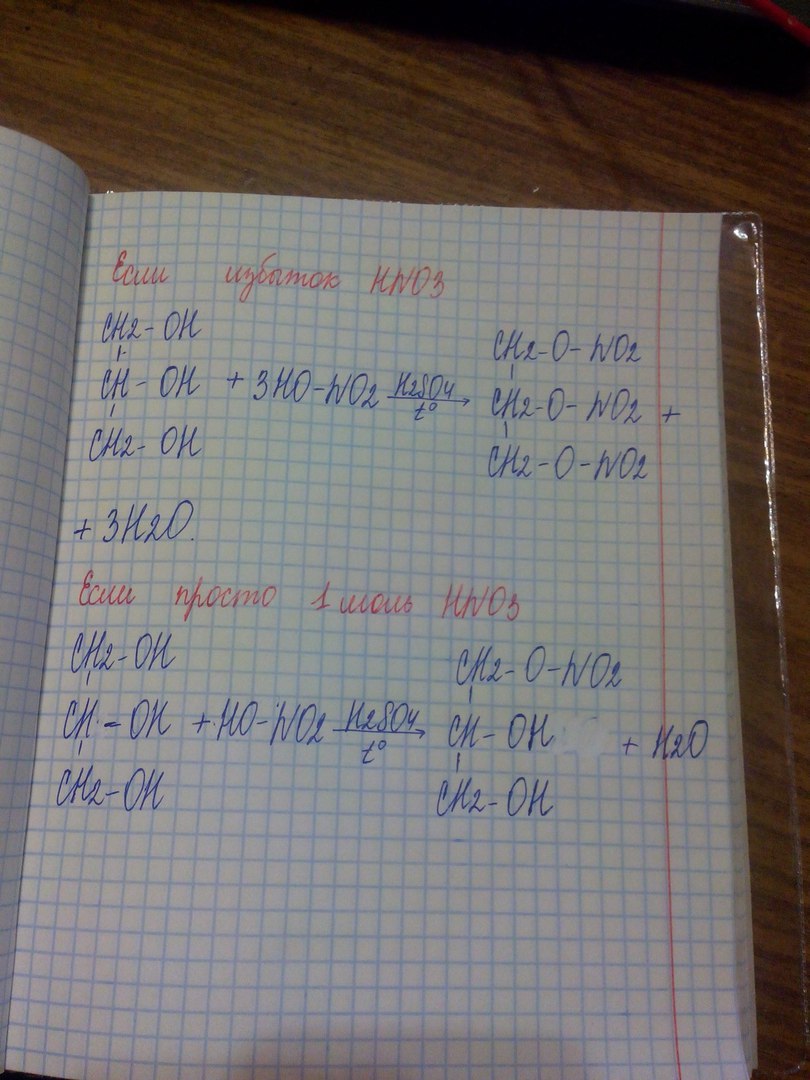 Если избыток HNO3
CH2-OH
CH2-O-NO2
CH-OH + 3HO-NO2 H2SO4 t° → CH2-O-NO2 +
CH2-OH
CH2-O-NO2
+ 3H2O.
Если просто 1 моль HNO3
CH2-OH
CH2-O-NO2
CH-OH + HO-NO2 H2SO4 t° → CH-OH + H2O
CH2-OH
CH2-OH